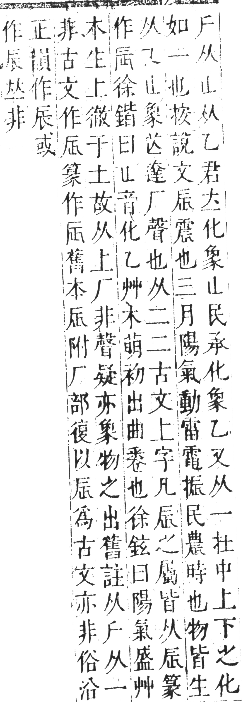 戶从山从乙君在化象山民承化象乙又从一在中上下之化
如一也按說文辰震也三月陽氣動雷電振民農時也物皆生
从乀山象芒達厂聲也从二二古文上字凡辰之屬皆从辰篆
作𠨷徐鍇曰山音化乙艸木萌初出曲卷也徐鉉曰陽氣盛艸
木生上徹于土故从上厂非聲疑亦象物之出舊註从戶从一
非古文作𠨷篆作𠨷舊本辰附厂部復以辰爲古文亦非俗沿
正韻作辰或
作辰𠀤非